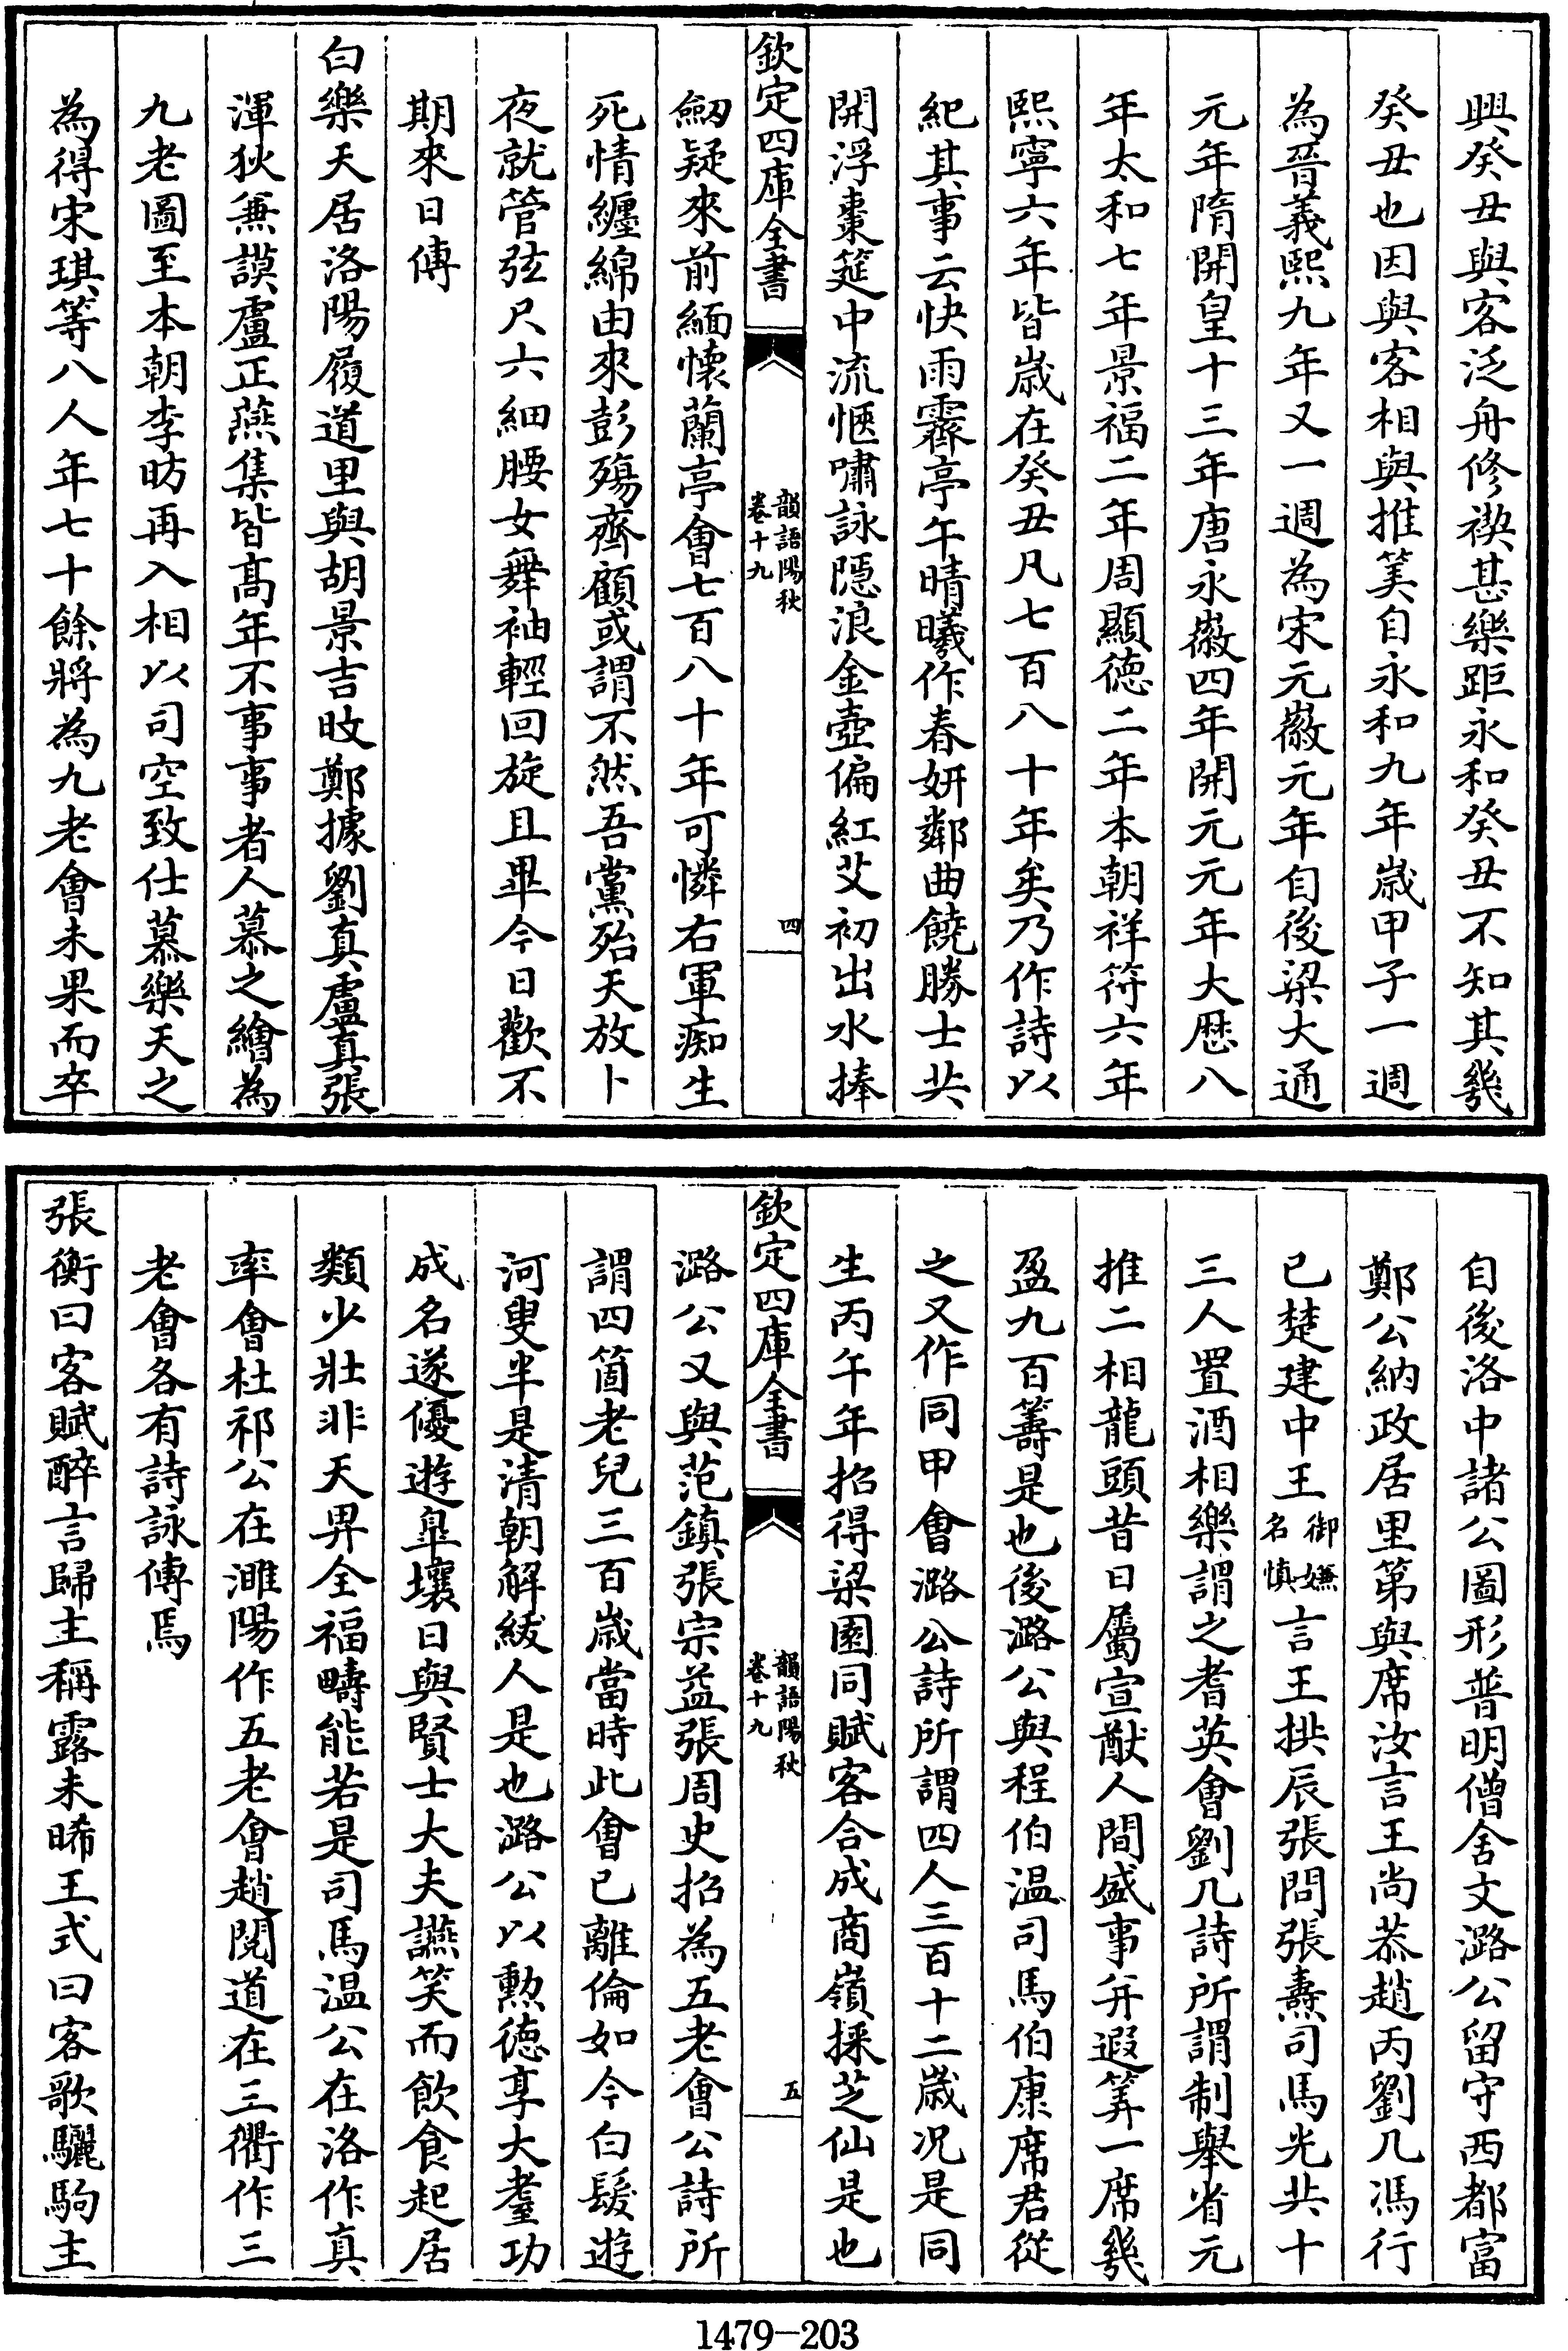 興癸丑與客泛舟修禊甚樂距永和癸丑不知其幾
癸丑也因與客相與推筭自永和九年歳甲子一週
為晉義熙九年又一週為宋元徽元年自後梁大通
元年隋開皇十三年唐永徽四年開元元年大厯八
年太和七年景福二年周顯徳二年本朝祥符六年
熙寧六年皆歳在癸丑凡七百八十年矣乃作詩以
紀其事云快雨霽亭午晴曦作春妍鄰曲饒勝士共
開浮棗筵中流愜嘯詠隠浪金壺偏紅艾初出水捧
欽定四庫全書
韻語陽秋
卷十九
四
劔疑來前緬懐蘭亭會七百八十年可憐右軍痴生
死情纏綿由來彭殤齊顧或謂不然吾黨殆天放卜
夜就管弦尺六細腰女舞袖輕回旋且畢今日歡不
期來日傳
白樂天居洛陽履道里與胡景吉旼鄭據劉真盧真張
渾狄兼謨盧正燕集皆髙年不事事者人慕之繪為
九老圖至本朝李昉再入相以司空致仕慕樂天之
為得宋琪等八人年七十餘將為九老會未果而卒
自後洛中諸公圖形普明僧舍文潞公留守西都富
鄭公納政居里第與席汝言王尚恭趙丙劉几馮行
已楚建中王御嫌名慎言王拱辰張問張燾司馬光共十
三人置酒相樂謂之耆英會劉几詩所謂制舉省元
推二相龍頭昔日屬宣猷人間盛事并遐筭一席幾
盈九百籌是也後潞公與程伯温司馬伯康席君從
之又作同甲會潞公詩所謂四人三百十二歳况是同
生丙午年招得梁園同賦客合成商嶺採芝仙是也
欽定四庫全書
韻語陽秋
卷十九
五
潞公又與范鎮張宗益張周史招為五老會公詩所
謂四箇老兒三百歳當時此會已離倫如今白髪遊
河叟半是清朝解紱人是也潞公以勲徳享大耋功
成名遂優遊臯壤日與賢士大夫讌笑而飲食起居
類少壯非天畀全福疇能若是司馬温公在洛作真
率會杜祁公在濉陽作五老會趙閱道在三衢作三
老會各有詩詠傳焉
張衡曰客賦醉言歸主稱露未晞王式曰客歌驪駒主
1479-203